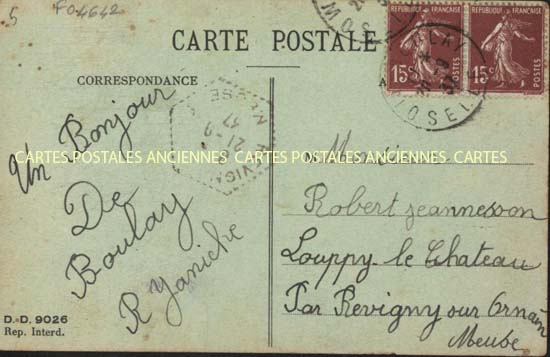 5
FO-4642
CARTE POSTALE
CORRESPONDANCE
REPUBLIQUE FRANÇAISE
15c
POSTES
REPUBLIQUE FRANÇAISE
15c
POSTES
MOSELLE
REVIGNY
MEUSE
21-9
CARTES POSTALES ANCIENNES CARTES POSTALES ANCIENNES CARTES POSTALES ANCIENNES
Un Bonjour
De
Boulay
R Yaniche
Monsieur
Robert Jeannesson
Louppy le Chateau
Par Revigny sur Ornain
Meuse
D.D. 9026
Rep. Interd.